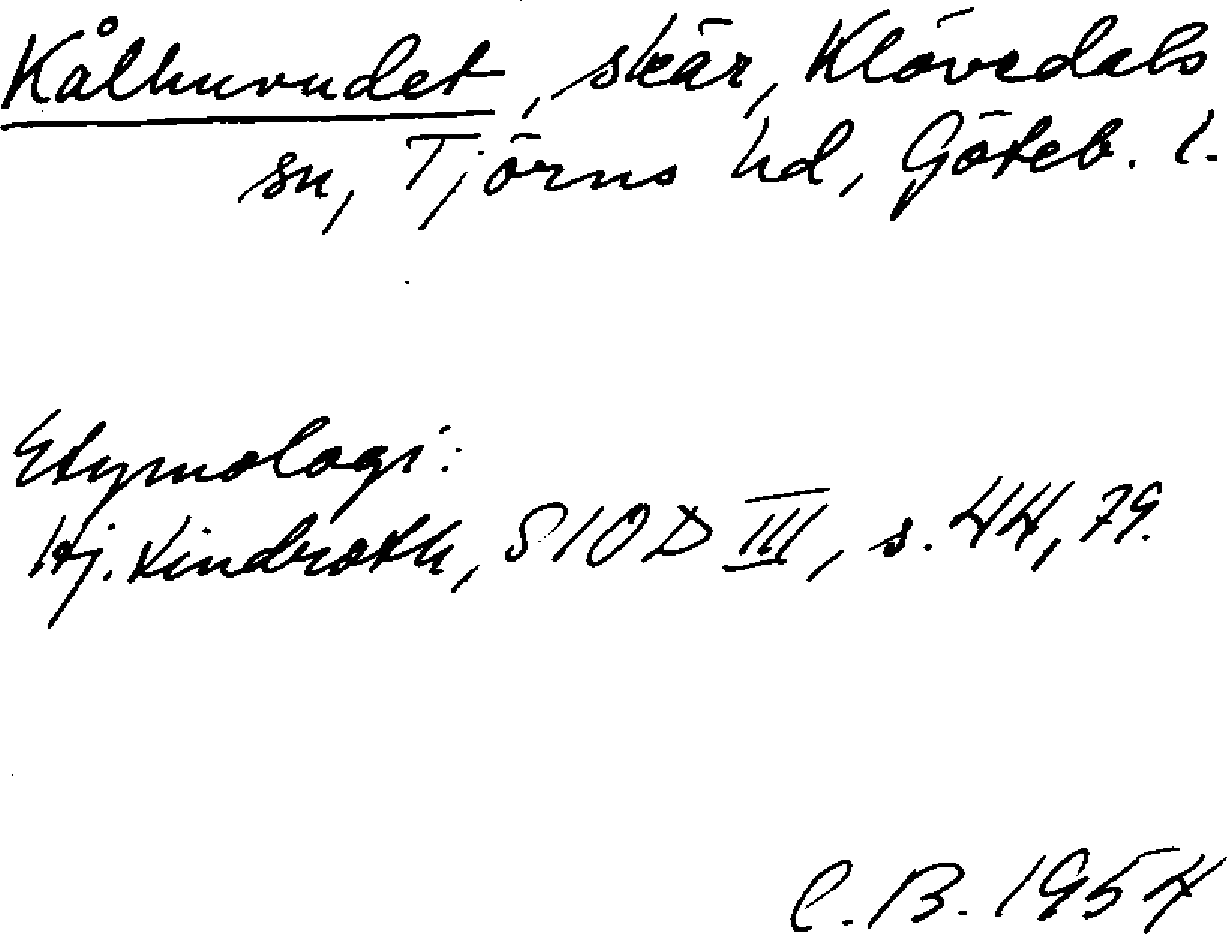 Kålhuvudet, skär, Klövedals
sn, Tjörns hd, Göteb. l.
Etymologi:
Hj. Lindroth, SIOD III, s. 44, 79.
C. B. 1954